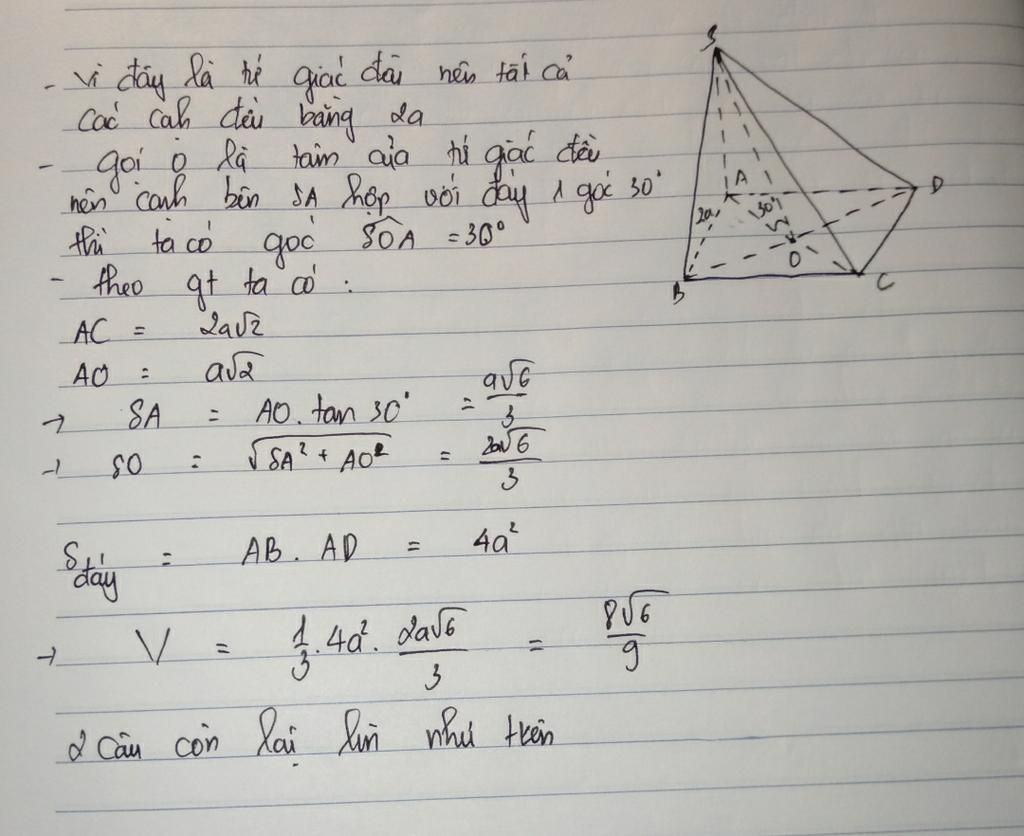 - Vì đây là tứ giác đều nên tất cả
các cah đều bằng 2a
- gọi O là tâm của tứ giác đều
nên cạnh bên SA hợp với đáy 1 góc 30°
thì ta có góc SOA = 30°
- theo gt ta có :
AC = 2a√2
AO = a√2
→ SA = AO. tan 30° = a√6/3
→ SO = √(SA² + AO²) = 2a√6/3
S đáy = AB . AD = 4a²
→ V = 1/3 . 4a² . 2a√6/3 = 8√6/9
2 câu còn lại như trên
S
A
D
2a
30°
O
B
C